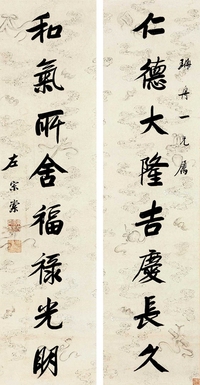 瑞丹一兄屬
仁德大隆吉慶長久
和氣所舍福祿光明
左宗棠